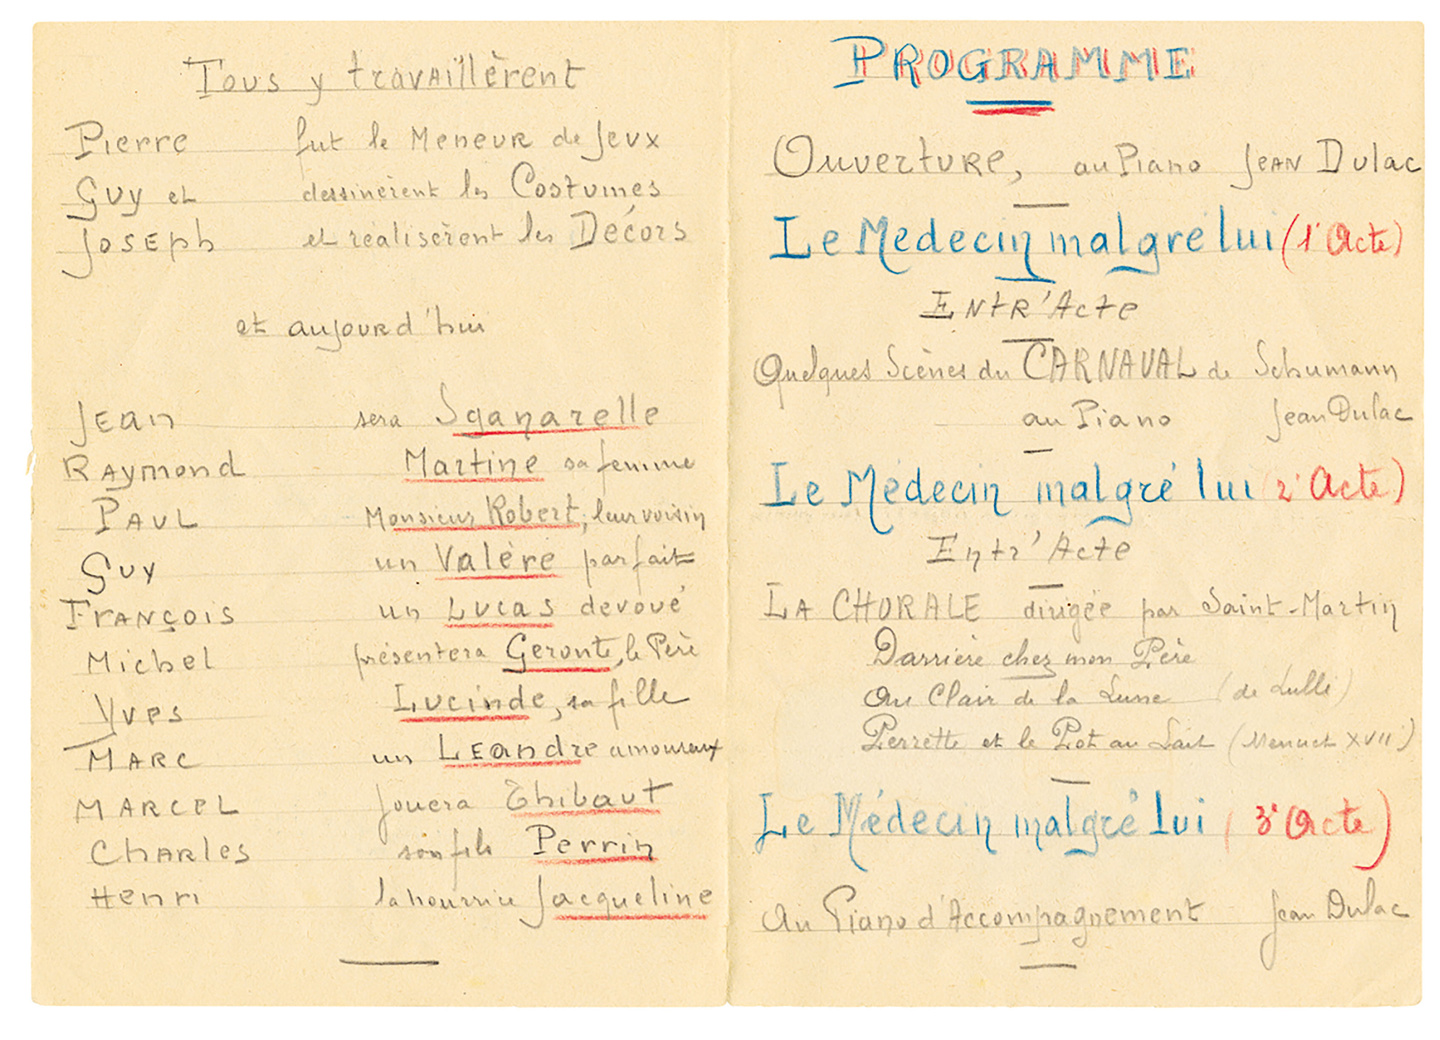 Tous y travaillèrent
Pierre fut le Meneur de Jeux
Guy et dessinèrent les Costumes
Joseph et réalisèrent les Décors
et aujourd'hui
Jean sera Sganarelle
Raymond Martine sa femme
Paul Monsieur Robert, leur voisin
Guy un Valère parfait
François un Lucas dévoué
Michel présentera Geronte, le Père
Yves Lucinde, sa fille
Marc un Leandre amoureux
Marcel jouera Thibaut
Charles son fils Perrin
Henri la nourrice Jacqueline
PROGRAMME
Ouverture, au Piano Jean Dulac
Le Médecin malgré lui (1° Acte)
Entr'Acte
Quelques Scènes du CARNAVAL de Schumann
au Piano Jean Dulac
Le Médecin malgré lui (2° Acte)
Entr'Acte
LA CHORALE dirigée par Saint-Martin
Darrière chez mon Père
Au Clair de la Lune (de Lulli)
Perrette et le Pot au Lait (Menuet XVII°)
Le Médecin malgré lui (3° Acte)
Au Piano d'Accompagnement Jean Dulac